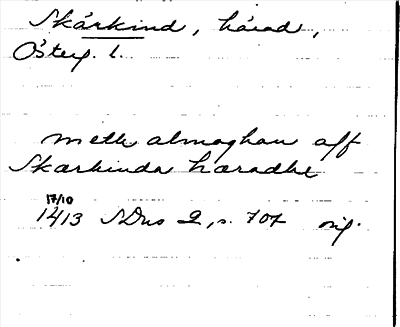 Skärkind, härad,
Österg. l.
meth almoghan aff
Skærkinda hæradhe
17/10
1413 SDns 2, s. 707 orig.